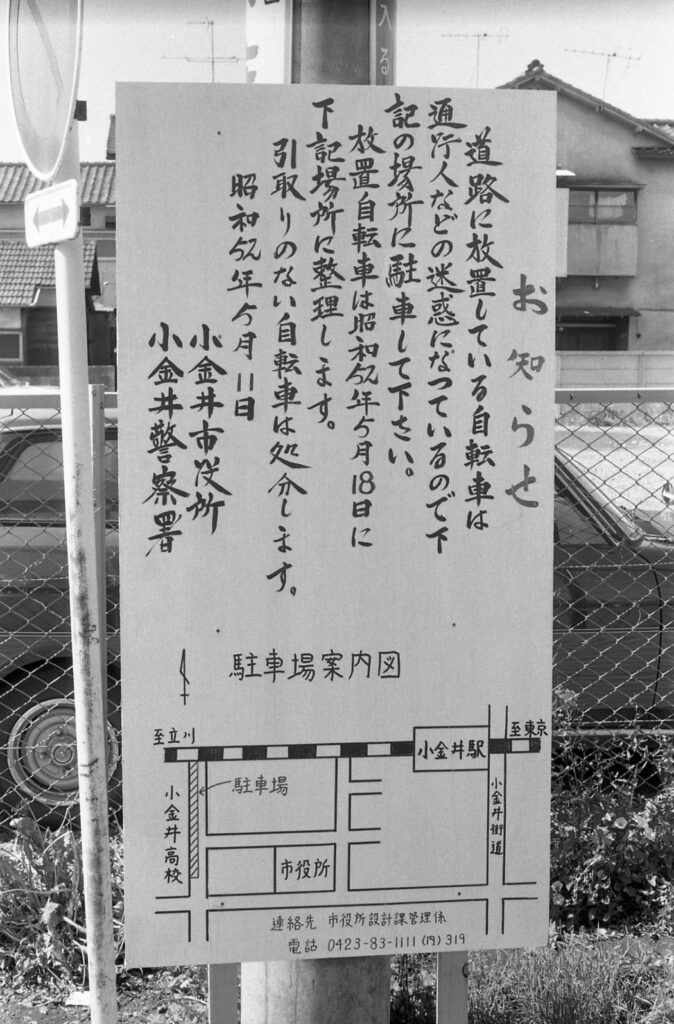 入る
お知らせ
道路に放置している自転車は
通行人などの迷惑になつているので下
記の場所に駐車して下さい。
放置自転車は昭和52年5月18日に
下記場所に整理します。
引取りのない自転車は処分します。
昭和52年5月11日
小金井市役所
小金井警察署
駐車場案内図
至立川
至東京
小金井駅
駐車場
小金井高校
小金井街道
市役所
連絡先 市役所設計課管理係
電話 0423-83-1111(内)319